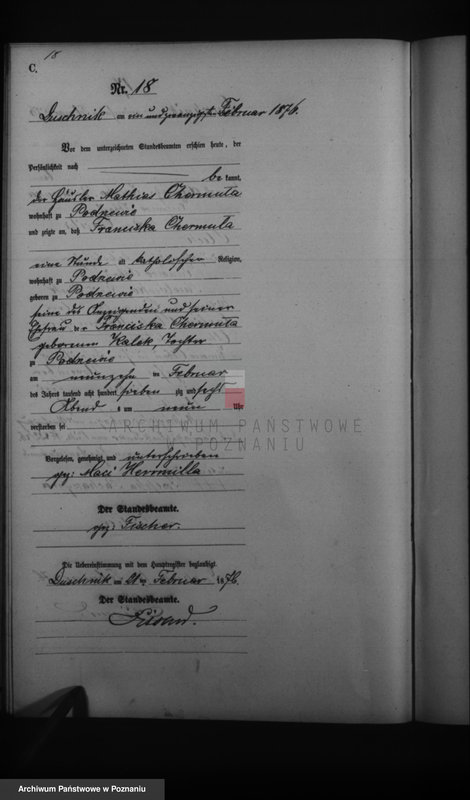 18
C.
Nr. 18
Duschnik am ein und zwanzigsten Februar 1876.
Vor dem unterzeichneten Standesbeamten erschien heute, der
Persönlichkeit nach
be kannt,
der Häusler Mathias Chermuta
wohnhaft zu Podrzewie
und zeigte an, daß Franciska Chermuta
eine Stunde alt katholischer Religion,
wohnhaft zu Podrzewie
geboren zu Podrzewie
seine des Anzeigenden und seiner
Ehefrau der Franciska Chermuta
geborenen Kalek Tochter
zu Podrzewie
am neunzehn ten Februar
des Jahres tausend acht hundert sieben zig und sechs
Abend s um neun Uhr
verstorben sei
Vorgelesen, genehmigt und unterschrieben
gez:
Der Standesbeamte.
gez: Fischer.
Die Uebereinstimmung mit dem Hauptregister beglaubigt.
Duschnik am 21 ten Februar 1876.
Der Standesbeamte.
ARCHIWUM PAŃSTWOWE
W POZNANIU
Archiwum Państwowe w Poznaniu